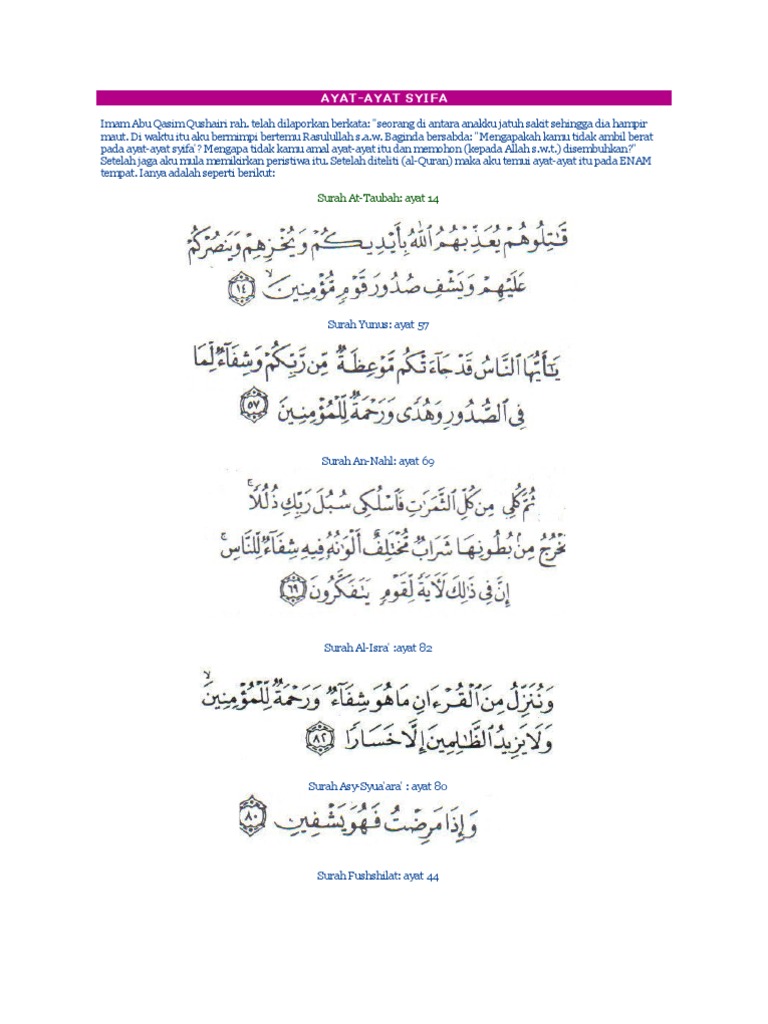 AYAT-AYAT SYIFA
Imam Abu Qasim Qushairi rah. telah dilaporkan berkata: "seorang di antara anakku jatuh sakit sehingga dia hampir
maut. Di waktu itu aku bermimpi bertemu Rasulullah s.a.w. Baginda bersabda: "Mengapakah kamu tidak ambil berat
pada ayat-ayat syifa'? Mengapa tidak kamu amal ayat-ayat itu dan memohon (kepada Allah s.w.t.) disembuhkan?"
Setelah jaga aku mula memikirkan peristiwa itu. Setelah diteliti (al-Quran) maka aku temui ayat-ayat itu pada ENAM
tempat. Ianya adalah seperti berikut:
Surah At-Taubah: ayat 14
قَٰتِلُوهُمْ يُعَذِّبْهُمُ ٱللَّهُ بِأَيْدِيكُمْ وَيُخْزِهِمْ وَيَنصُرْكُمْ
عَلَيْهِمْ وَيَشْفِ صُدُورَ قَوْمٍ مُّؤْمِنِينَ ۙ ١٤
Surah Yunus: ayat 57
يَٰٓأَيُّهَا ٱلنَّاسُ قَدْ جَآءَتْكُم مَّوْعِظَةٌ مِّن رَّبِّكُمْ وَشِفَآءٌ لِّمَا
فِى ٱلصُّدُورِ وَهُدًى وَرَحْمَةٌ لِّلْمُؤْمِنِينَ ٥٧
Surah An-Nahl: ayat 69
ثُمَّ كُلِى مِن كُلِّ ٱلثَّمَرَٰتِ فَٱسْلُكِى سُبُلَ رَبِّكِ ذُلُلًا ۚ
يَخْرُجُ مِنۢ بُطُونِهَا شَرَابٌ مُّخْتَلِفٌ أَلْوَٰنُهُۥ فِيهِ شِفَآءٌ لِّلنَّاسِ ۚ
إِنَّ فِى ذَٰلِكَ لَءَايَةً لِّقَوْمٍ يَتَفَكَّرُونَ ٦٩
Surah Al-Isra' :ayat 82
وَنُنَزِّلُ مِنَ ٱلْقُرْءَانِ مَا هُوَ شِفَآءٌ وَرَحْمَةٌ لِّلْمُؤْمِنِينَ ۙ
وَلَا يَزِيدُ ٱلظَّٰلِمِينَ إِلَّا خَسَارًا ٨٢
Surah Asy-Syua'ara' : ayat 80
وَإِذَا مَرِضْتُ فَهُوَ يَشْفِينِ ٨٠
Surah Fushshilat: ayat 44